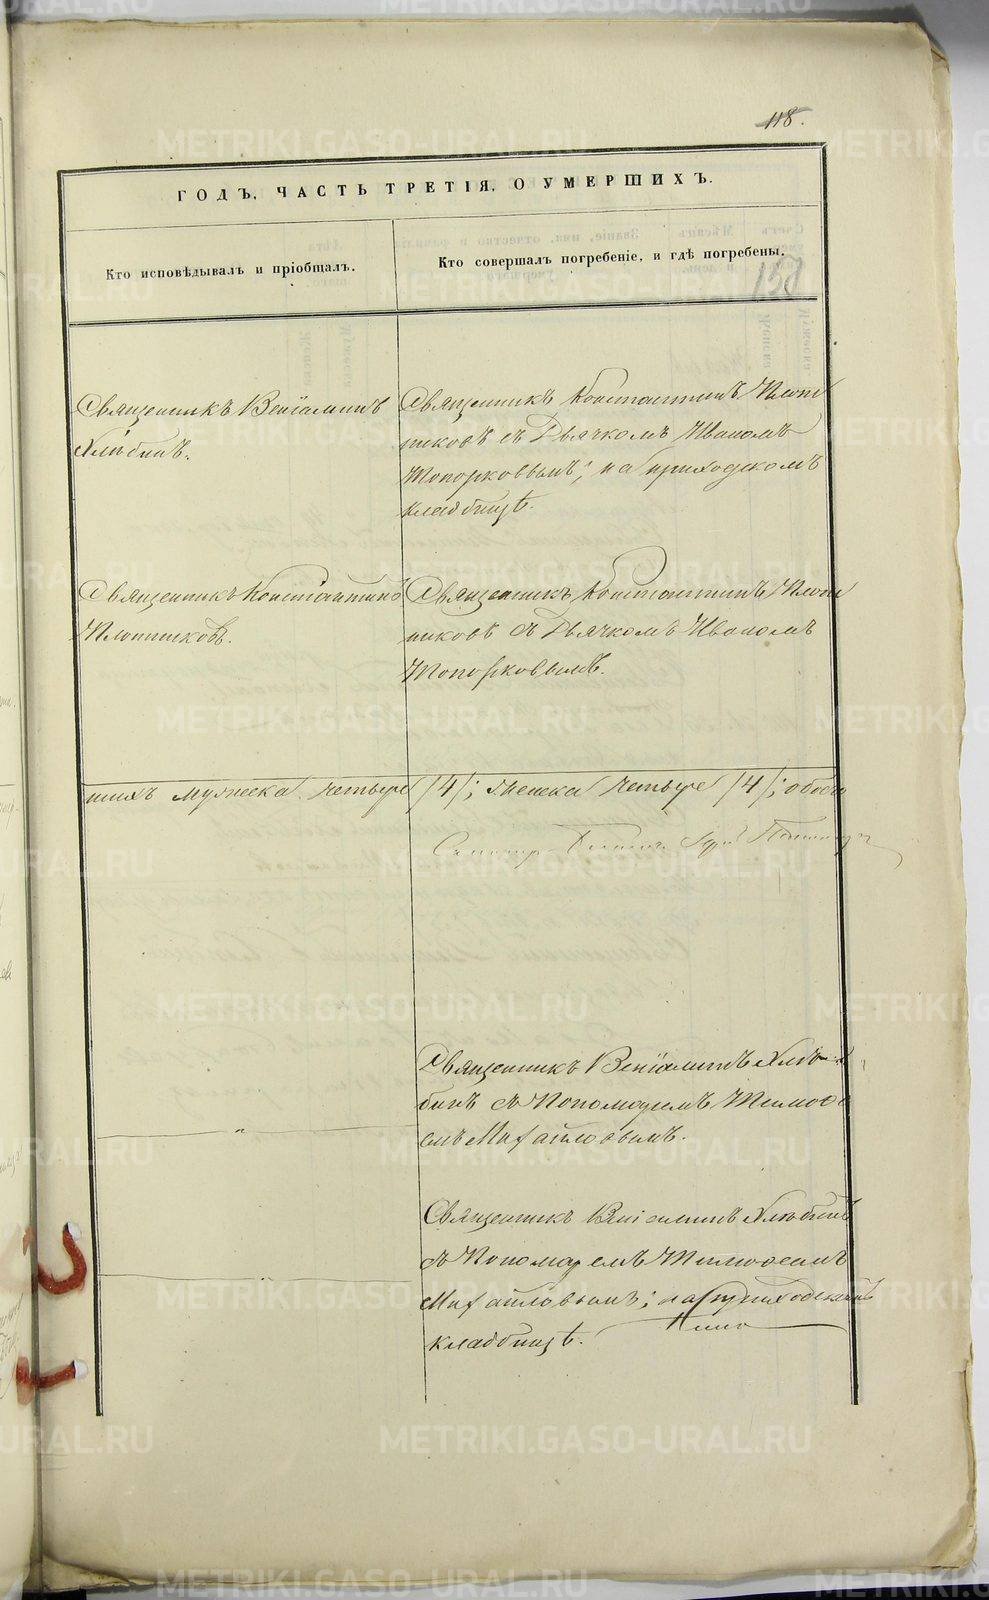 118.
ГОДЪ, ЧАСТЬ ТРЕТІЯ, О УМЕРШИХЪ.
Кто исповѣдывалъ и пріобщалъ.
Кто совершалъ погребеніе, и гдѣ погребены.
Священникъ Веніаминъ
Хлѣбинъ.
Священникъ Константинъ Плот
никовъ съ Дьячкомъ Иваномъ
Топорковымъ; на приходскомъ
кладбищѣ.
Священникъ Константинъ
Плотниковъ.
Священникъ Константинъ Плот
никовъ съ Дьячкомъ Иваномъ
Топорковымъ.
шихъ мужеска четыре /4/; женска четыре /4/; обоего
Священникъ Веніаминъ Хлѣ-
бинъ съ Пономаремъ Тимофе
емъ Михайловымъ.
Священникъ Веніаминъ Хлѣбинъ
съ Пономаремъ Тимофеемъ
Михайловымъ; на приходскомъ
кладбищѣ.
METRIKI.GASO-URAL.RU